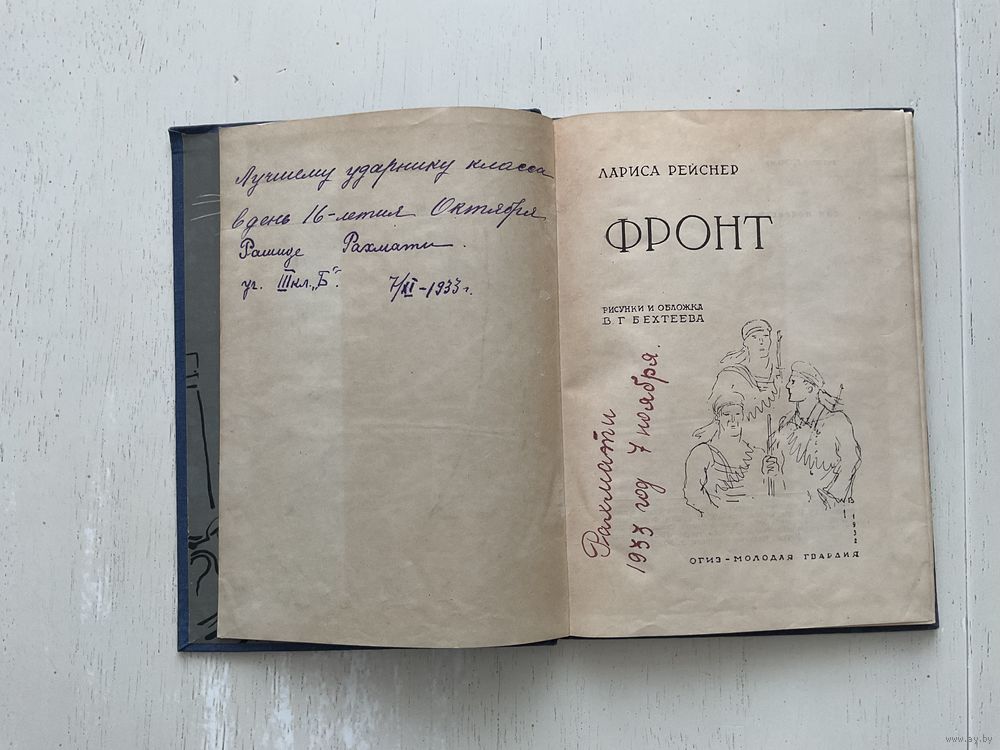 Лучшему ударнику класса
в день 16-летия Октября
Рашиде Рахмати.
уч. III кл. „Б".  7/XI-1933 г.
ЛАРИСА РЕЙСНЕР
ФРОНТ
РИСУНКИ И ОБЛОЖКА
В. Г. БЕХТЕЕВА
Рахмати
1933 год 7 ноября.
1932
ОГИЗ-МОЛОДАЯ ГВАРДИЯ
www.ay.by